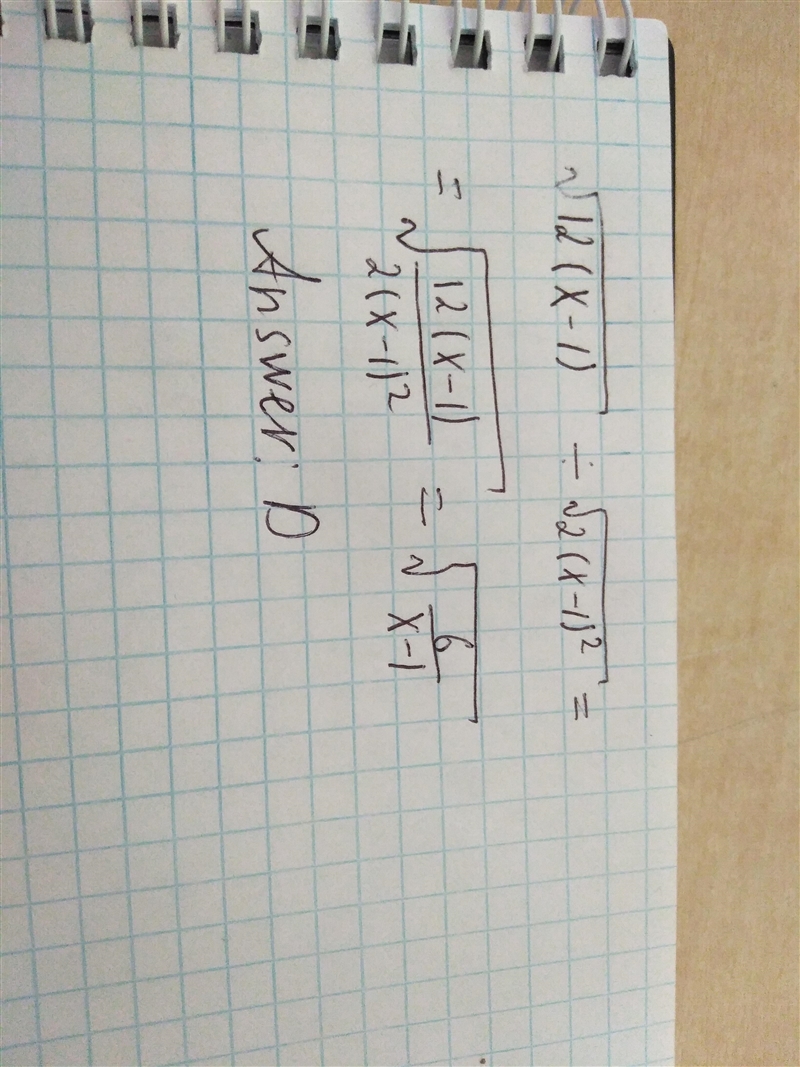 √12(x-1) ÷ √2(x-1)² =
= √12(x-1)/2(x-1)² = √6/x-1
Answer: D